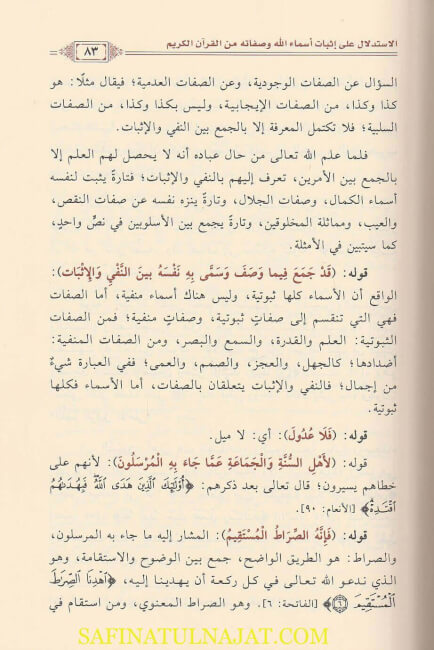 الاستدلال على إثبات أسماء الله وصفاته من القرآن الكريم
٨٣
السؤال عن الصفات الوجودية، وعن الصفات العدمية؛ فيقال مثلًا: هو
كذا وكذا، من الصفات الإيجابية، وليس بكذا وكذا، من الصفات
السلبية؛ فلا تكتمل المعرفة إلا بالجمع بين النفي والإثبات.
فلما علم الله تعالى من حال عباده أنه لا يحصل لهم العلم إلا
بالجمع بين الأمرين، تعرف إليهم بالنفي والإثبات؛ فتارةً يثبت لنفسه
أسماء الكمال، وصفات الجلال، وتارةً ينزه نفسه عن صفات النقص،
والعيب، ومماثلة المخلوقين، وتارةً يجمع بين الأسلوبين في نصٍّ واحدٍ،
كما سيتبين في الأمثلة.
قوله: (قَدْ جَمَعَ فِيما وَصَفَ وَسَمَّى بِهِ نَفْسَهُ بينَ النَّفْيِ وَالإِثْبَات):
الواقع أن الأسماء كلها ثبوتية، وليس هناك أسماء منفية، أما الصفات
فهي التي تنقسم إلى صفاتٍ ثبوتية، وصفاتٍ منفية؛ فمن الصفات
الثبوتية: العلم والقدرة، والسمع والبصر، ومن الصفات المنفية:
أضدادها؛ كالجهل، والعجز، والصمم، والعمى؛ ففي العبارة شيءٌ
من إجمال؛ فالنفي والإثبات يتعلقان بالصفات، أما الأسماء فكلها
ثبوتية.
قوله: (فَلَا عُدُولَ): أي: لا ميل.
قوله: (لأَهْلِ السُّنَّةِ وَالْجَمَاعَةِ عَمَّا جَاءَ بِهِ الْمُرْسَلُونَ): لأنهم على
خطاهم يسيرون؛ قال تعالى بعد ذكرهم: ﴿أُوْلَٰٓئِكَ ٱلَّذِينَ هَدَى ٱللَّهُ فَبِهُدَىٰهُمُ
ٱقْتَدِهْ﴾ [الأنعام: ٩٠].
قوله: (فَإِنَّهُ الصِّرَاطُ الْمُسْتَقِيمُ): المشار إليه ما جاء به المرسلون،
والصراط: هو الطريق الواضح، جمع بين الوضوح والاستقامة، وهو
الذي ندعو الله تعالى في كل ركعة أن يهدينا إليه، ﴿ٱهْدِنَا ٱلصِّرَٰطَ
ٱلْمُسْتَقِيمَ ٦﴾ [الفاتحة: ٦]. وهو الصراط المعنوي، ومن استقام في
SAFINATULNAJAT.COM